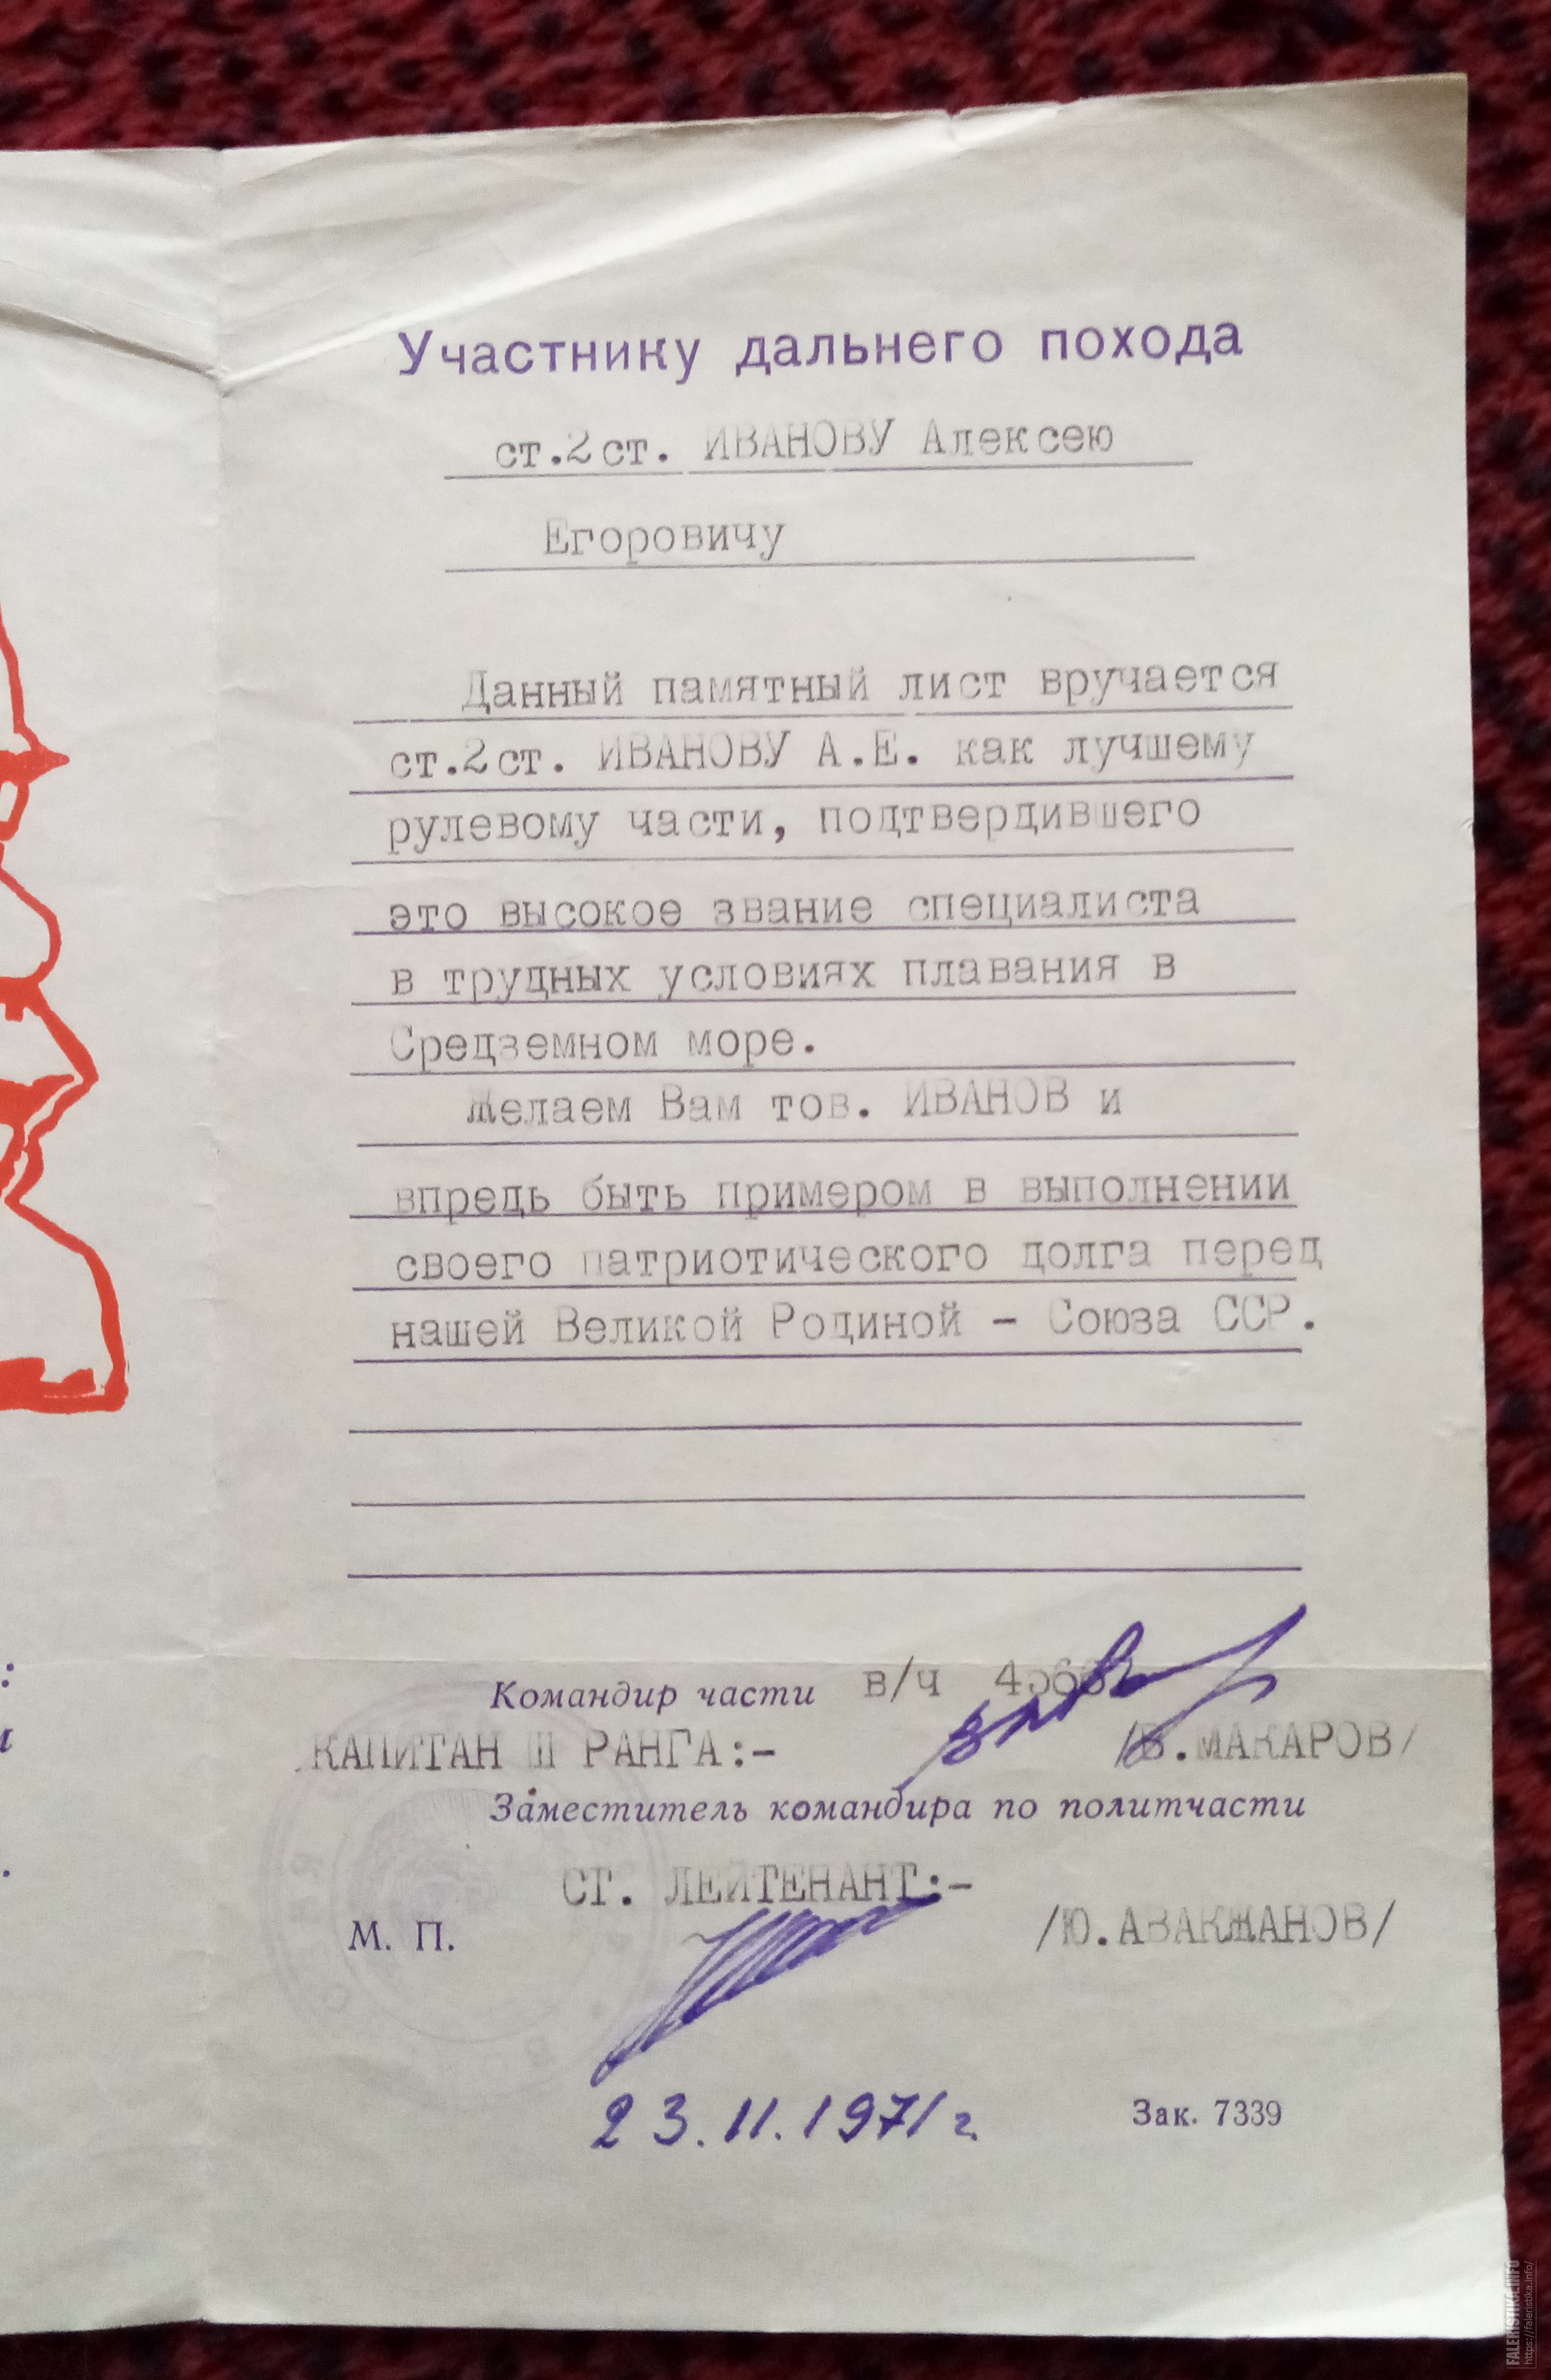 Участнику дальнего похода
ст.2ст. ИВАНОВУ Алексею
Егоровичу
Данный памятный лист вручается
ст.2ст. ИВАНОВУ А.Е. как лучшему
рулевому части, подтвердившего
это высокое звание специалиста
в трудных условиях плавания в
Средземном море.
Желаем Вам тов. ИВАНОВ и
впредь быть примером в выполнении
своего патриотического долга перед
нашей Великой Родиной - Союза ССР.
Командир части в/ч
КАПИТАН Ш РАНГА:- /В.МАКАРОВ/
Заместитель командира по политчасти
СТ. ЛЕЙТЕНАНТ:-
М. П.
/Ю.АВАКЖАНОВ/
23.11.1971г.
Зак. 7339
FALERISTIKA.INFO
https://faleristika.info/